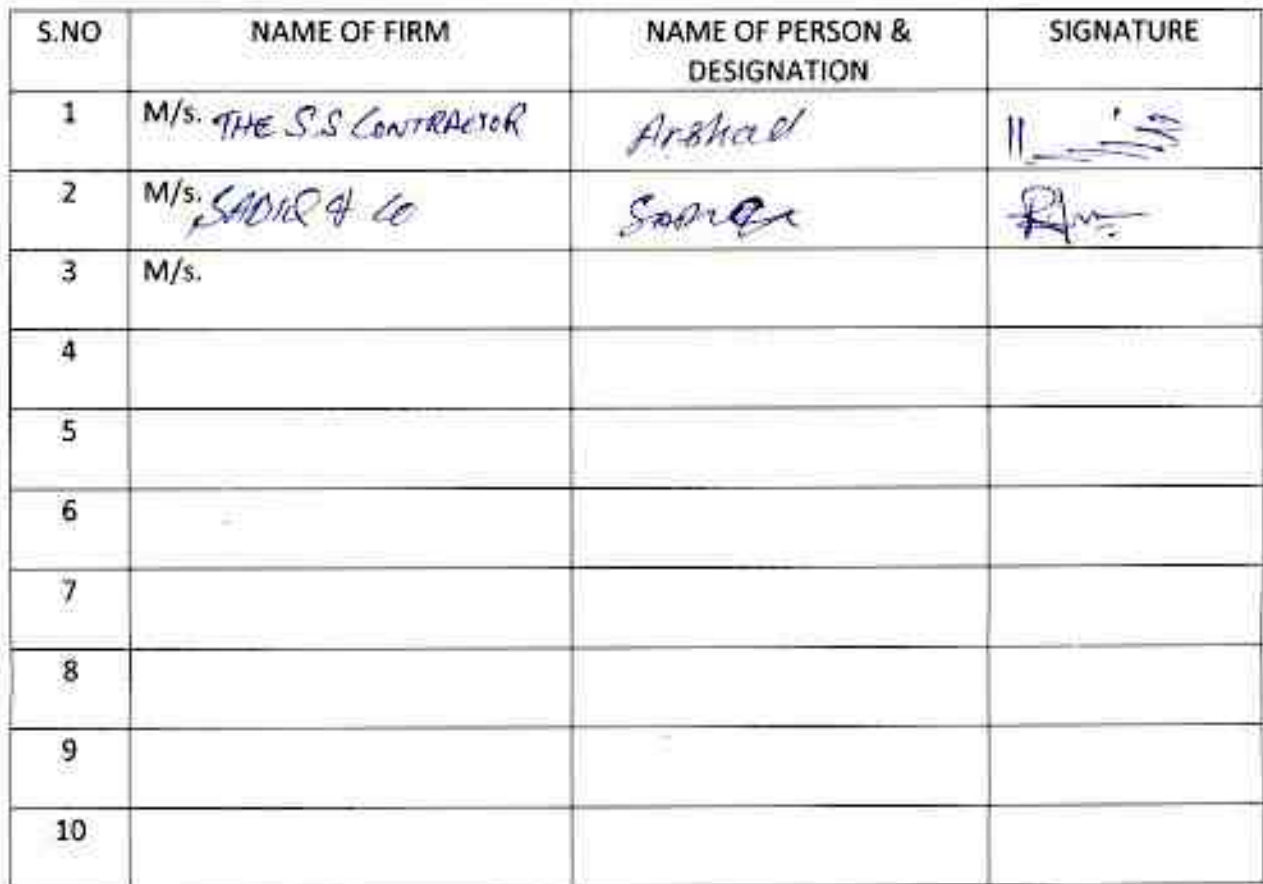 S.NO NAME OF FIRM NAME OF PERSON & SIGNATURE
DESIGNATION
1 M/s. THE S.S CONTRACTOR Arshad
2 M/s. SADIQ & Co SADIQ
3 M/s.
4
5
6
7
8
9
10